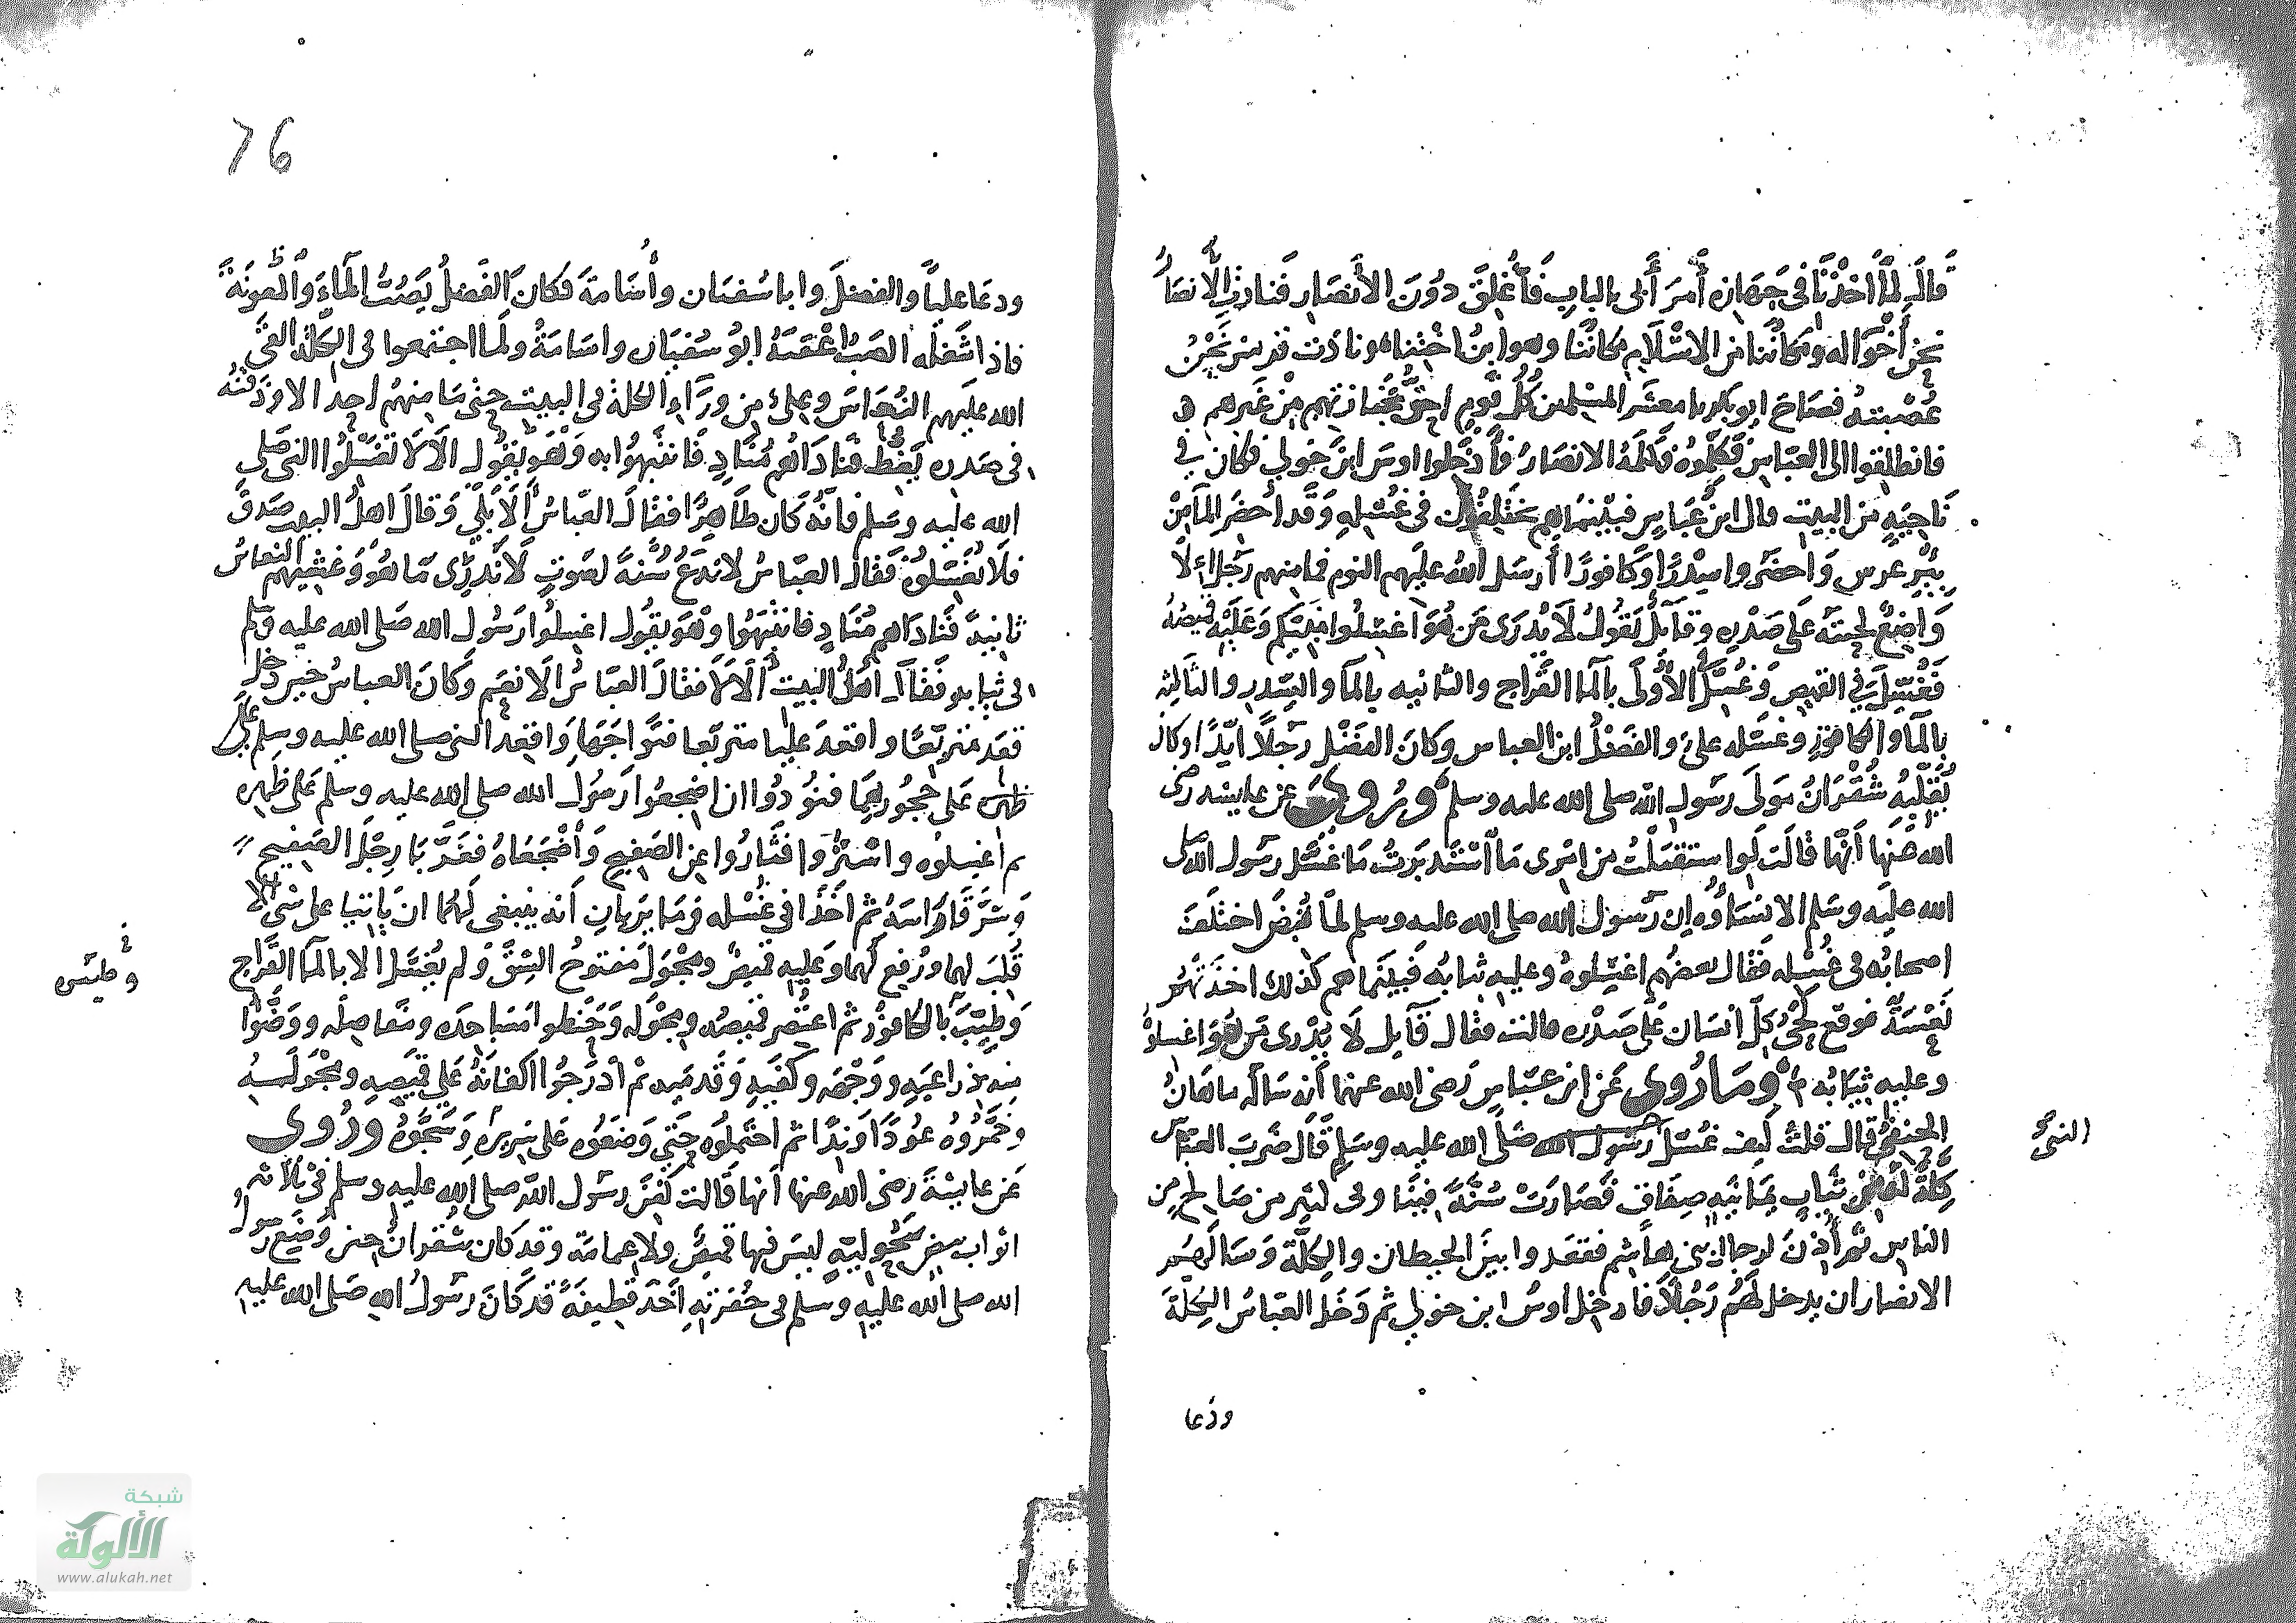 قال لما اخذنا في جهازه أمر أبي بالباب فأغلق دون الأنصار فنادت الأنصار
نحن أخواله ومكاننا من الاسلام مكاننا وهو ابن اختنا ونادت قريش نحن
عصبته فصاح ابو بكر يا معشر المسلمين كل قوم احق بجنازتهم من غيرهم
فانطلقوا الى العباس فكلموه فكلمه الانصار فأدخلوا اوس ابن خولي فكان في
ناحية من البيت قال ابن عباس فبينما هم يختلفون في غسله وقد احضر الماء من
بئر غرس واحضروا سدرا وكافورا أرسل الله عليهم النوم فما منهم رجل إلا
واضع لحيته على صدره وقائل يقول لا يدرى من هو اغسلوا نبيكم وعليه قميصه
فغسل في القميص وغسل الأولى بالماء القراح والثانيه بالماء والسدر والثالثه
بالماء والكافور وغسله على والفضل ابن العباس وكان الفضل رجلا ايدا وكان
يقلبه شقران مولى رسول الله صلى الله عليه وسلم وروى عن عايشه رضى
الله عنها أنها قالت لو استقبلت من امرى ما استدبرت ما غسل رسول الله صلى
الله عليه وسلم الا نساؤه إن رسول الله صلى الله عليه وسلم لما قبض اختلف
اصحابه في غسله فقال بعضهم اغسلوه وعليه ثيابه فبينما هم كذلك اخذتهم
نعسة فوقع لحي كل انسان على صدره قالت فقال قايل لا يدرى من هو اغسلوه
وعليه ثيابه وما روى عن ابن عباس رضى الله عنهما أنه سأله
قال قلت كيف غسل رسول الله صلى الله عليه وسلم قال ضرب العباس
النبي
كلة من ثياب يمانيه صفاق فصارت سنة فينا وفى كثير من صالح من
الناس ثم أذن لرجال بنى هاشم فقعدوا بين الحيطان والكلة وسألهم
الانصار ان يدخل لهم رجلا فادخل اوس ابن خولي ثم دخل العباس الكلة
ودعا
76
ودعا عليا والفضل وابا سفيان وأسامة فكان الفضل يصب الماء والمعونة
فاذا شغله الصب اعقبه ابو سفيان واسامة ولما اجتمعوا فى الكلة القى
الله عليهم النعاس وعلى من وراء الكلة فى البيت حتى ما منهم احد الا وذقنه
فى صدره يغط فناداهم مناد فانتبهوا به وهو يقول ألا لا تغسلوا النبى صلى
الله عليه وسلم فانه كان طاهرا فقال العباس ألا بلى وقال اهل البيت صدق
فلا تغسلوه فقال العباس لا ندع سنة لصوت لا ندرى ما هو وغشيهم النعاس
ثانية فناداهم مناد فانتبهوا وهو يقول اغسلوا رسول الله صلى الله عليه وسلم
فى ثيابه فقال اهل البيت ألا لا فقال العباس ألا نعم وكان العباس حين دخل
قعد متربعا واقعد عليا متربعا فتواجها واقعد النبى صلى الله عليه وسلم على
ظهره على حجورهما فنودوا ان اضجعوا رسول الله صلى الله عليه وسلم على ظهره
ثم اغسلوه واستروا فثاروا عن الصفيح وأضجعاه فغربا رجل الصفيح
وشرقا راسه ثم اخذا في غسله وما يريان أنه ينبغى لهما ان ياتيا على شى الا
قلب لهما ورفع لهما وعليه قميص ومجول مفتوح الشق ولم يغسل الا بالماء القراح
وطيب بالكافور ثم اعتصر قميصه ومجوله وحنطوا مساجده ومفاصله ووضوا
منه ذراعيه ووجهه وكفيه وقدميه ثم أدرجوا اكفانه على قميصه ومجوله
وجمروه عودا وندا ثم احتملوه حتى وضعوه على سريره وسجوه وروى
عن عايشة رضى الله عنها أنها قالت كفن رسول الله صلى الله عليه وسلم في ثلاثه
اثواب بيض سحولية ليس فيها قميص ولا عمامة وقد كان شقران حين وضع رسول
الله صلى الله عليه وسلم فى حفرته أخذ قطيفة قد كان رسول الله صلى الله عليه
شبكة
الألوكة
www.alukah.net